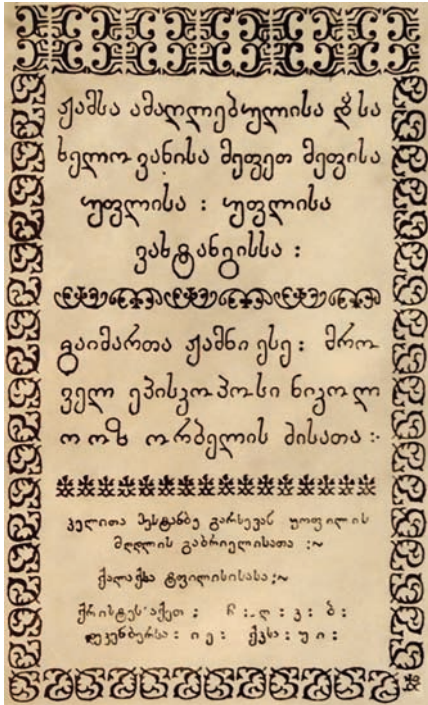 ჟამსა ამაღლებულისა და სა
ხელოვანისა მეფეთ მეფისა
უფლისა : უფლისა
ვახტანგისსა :
გაიმართა ჟამნი ესე : მრო
ველ ეპისკოპოსი ნიკოლ
ოოზ ორბელის მისათა :·
ჴელითა მესტანბე გარსევან ყოფილის
მღდლის გაბრიელისათა :~
ქალაქსა ტფილისისასა :~
ქრისტეს აქეთ : ჩ : ღ : კ : ბ :
დეკენბერსა : ი ე : ქკსა : უ ი :